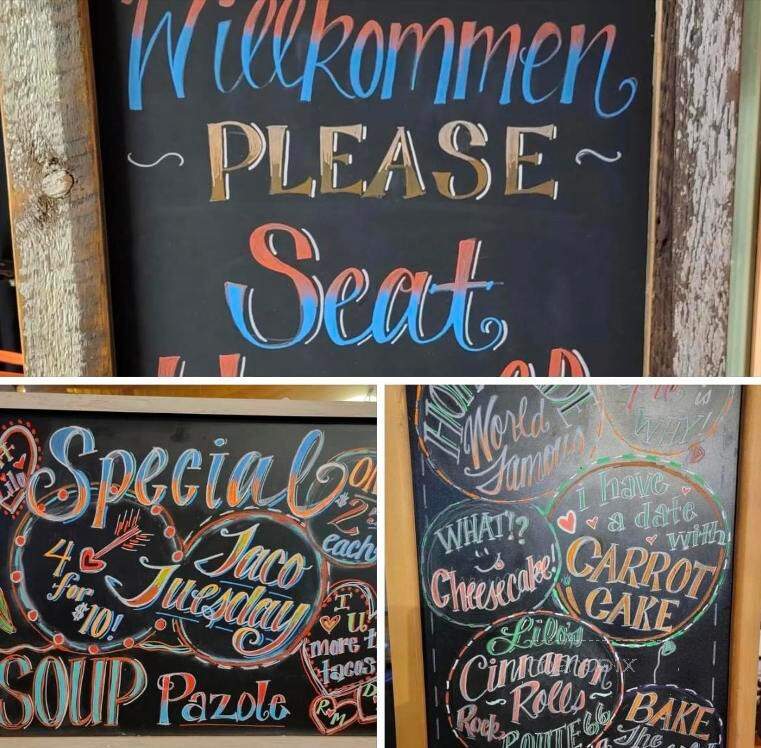 Willkommen
~ PLEASE ~
Seat
Special
4
for
$10!
Taco
Tuesday
each
I ♥ U
more t
tacos
R♥M
SOUP Pazole
World
Famous
is
WHY!
WHAT!?
Cheesecake!
i have
a date
with
CARROT
CAKE
Lilo's
Cinnamon
~ Rolls ~
Rock
ROUTE 66
BAKE
The